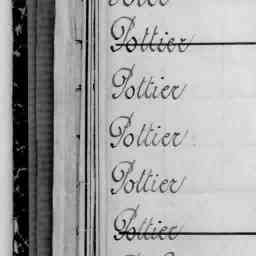 Pottier
Pottier
Pottier
Pottier
Pottier